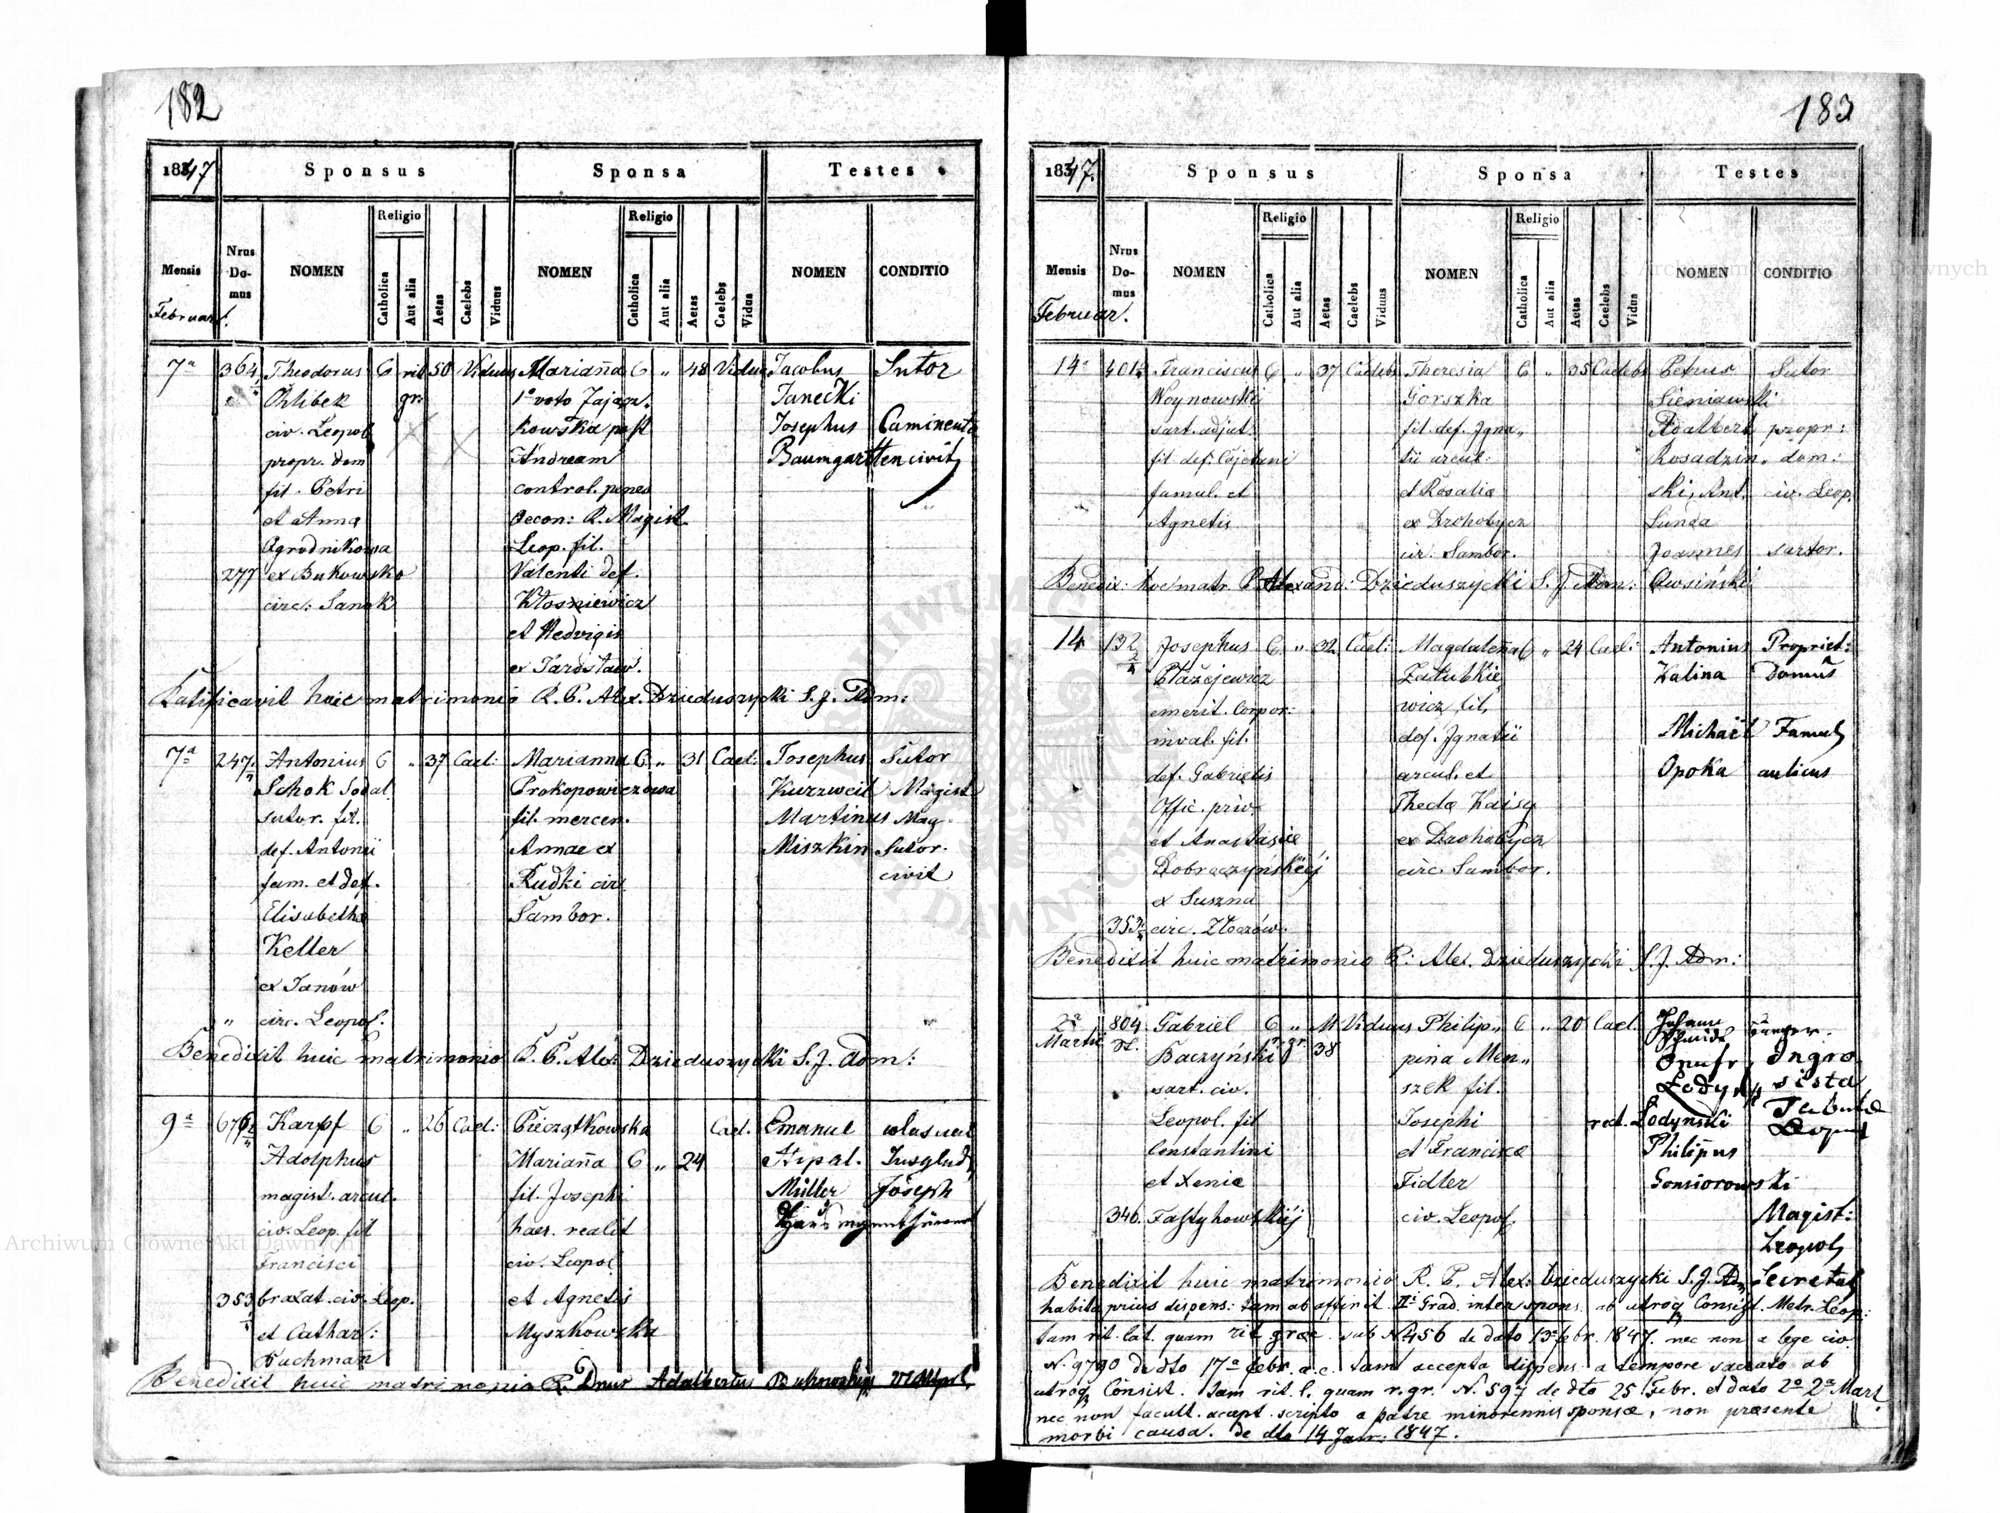 182
1847
Sponsus
Sponsa
Testes
Mensis
Nrus Domus
NOMEN
Religio
Catholica
Aut alia
Aetas
Caelebs
Viduus
NOMEN
Religio
Catholica
Aut alia
Aetas
Caelebs
Vidua
NOMEN
CONDITIO
Februar.
7a 364 Theodorus C rit 50 Viduus Marianna C " 48 Vidua Jacobus Sutor
Chlibek gr. 1o voto Zajacz. Janecki
civ. Leopol kowska post Josephus Caminenta
propr. dom Andream Baumgartten civit
fil. Petri control. penes
et Anna Oecon: R. Magist.
Ogrodnikowa Leop. fil.
277 ex Bukowsko Valenti def.
circ: Sanok Kłosniewicz
et Hedvigis
ex Jarosław.
Ratificavit huic matrimonio R. P. Alex. Dzieduszycki S. J. Adm:
7a 247 Antonius C " 37 Cael: Marianna C " 31 Cael: Josephus Sutor
Schok Sodal. Prokopowiczowa Kurzweil Magist
sutor. fil. fil. mercen. Martinus Mag.
def. Antonii Annae ex Miszkin Sutor.
fam. et def. Rudki circ civit
Elisabetha Sambor.
Keller
ex Janów
" circ. Leopol.
Benedixit huic matrimonio R. P. Alex: Dzieduszycki S. J. Adm:
9a 676 Karpf C " 26 Cael: Pieczątkowska Cael. Emanuel
Adolphus Marianna C " 24
magist. arcul. fil. Josephi Müller Joseph
civ. Leop. fil haer. realit
Francisci civ. Leopol
353 brazat. civ. Leop. et Agnetis
et Cathar: Myszkowska
Bachman
Benedixit huic matrimonio R. Dnus Adalbertus Bukowski
183
1847.
Sponsus
Sponsa
Testes
Mensis
Nrus Domus
NOMEN
Religio
Catholica
Aut alia
Aetas
Caelebs
Viduus
NOMEN
Religio
Catholica
Aut alia
Aetas
Caelebs
Vidua
NOMEN
CONDITIO
Februar.
14a 401 Franciscus C " 37 Caelebs Theresia C " 35 Caelebs Petrus Sutor
Woynowski Gorszka Sieniawski
sart. adjut. fil. def. Igna- Adalbert propr:
fil def. Cajetani tii arcul: Rosadzin- dom:
famul. et et Rosalia ski, Ant. civ. Leop.
Agnetis ex Drohobycz Sunda
cir. Sambor. Joannes sartor.
Benedix: hoc matr. P. Alexand: Dzieduszycki S. J. Adm: Owsiński
14 132 Josephus C " 32 Cael: Magdalena C " 24 Cael: Antonius Propriet:
2/4 Błażejewicz Załubkie Kalina Domus
emerit. Corpor: wicz fil.
inval. fil. def. Ignatii Michael Famul
def. Gabrielis arcul. et Opoka aulicus
Offic. priv. Theda Kaisy
et Anastasiae ex Drohobycz
Dobraczynskiej circ. Sambor.
ex Suszna
353 circ. Złoczów.
Benedixit huic matrimonio P: Alex. Dzieduszycki S. J. Adm:
2a Martii 804 Gabriel C " Viduus Philip- C " 20 Cael. Johann Bürger.
Baczyński r. gr. 38 pina Men- Schmidt
sart. civ. szek fil. Onufr. Ingro
Leopol. fil Josephi rect. Łodyński sista Tabulae
Constantini et Francisca Philippus Leopol
et Xenia Fidler Gonsiorowski
346. Fastyhowskiej civ. Leopol. Magist:
Leopol
Benedixit huic matrimonio R. P. Alex. Dzieduszycki S. J. Adm Secretar
habita prius dispens: tam ab affinit IIi Grad. inter spons. ab utroq Consist. Metr. Leop:
tam rit. lat. quam rit graec. sub N 456 de dato 13 febr. 1847. nec non a lege civ
N. 9790 de dto 17a febr. a. c. tam accepta dispens. a tempore sacrato ab
utroq Consist. tam rit. l. quam r. gr. N. 597 de dto 25 Febr. et dato 2a Mart.
nec non facult. accept. scripto a patre minorennis sponsae, non praesente
morbi causa. de dto 14 Janr: 1847.
Archiwum Główne Akt Dawnych
Archiwum Główne Akt Dawnych